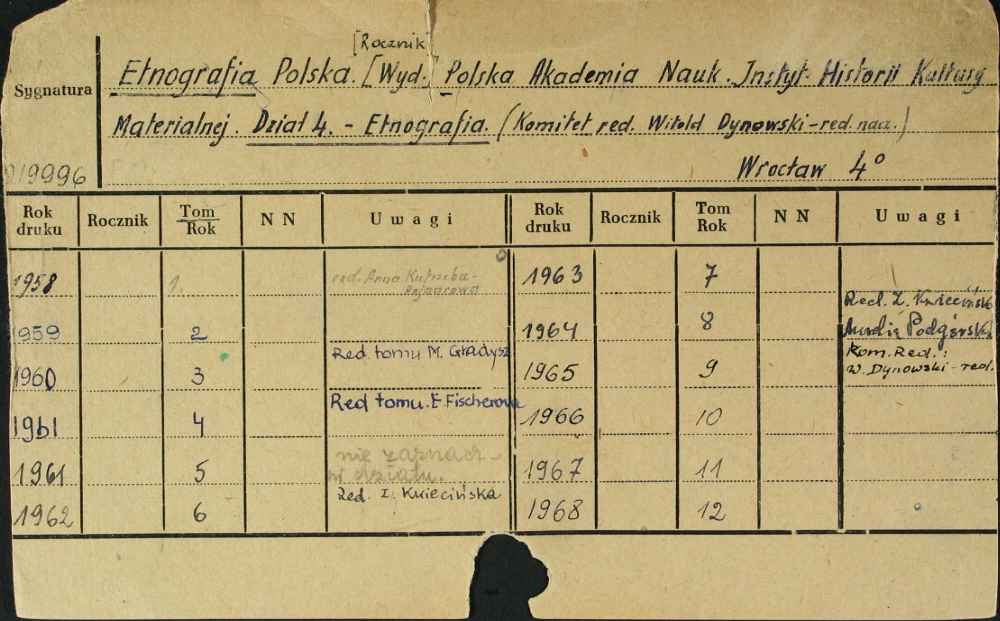 [Rocznik]
Sygnatura
Etnografia Polska. [Wyd.] Polska Akademia Nauk. Instyt. Historii Kultury
Materialnej. Dział 4. - Etnografia. (Komitet red. Witold Dynowski - red. nacz.)
19996
Wrocław 4°
Rok druku Rocznik Tom Rok N N Uwagi Rok druku Rocznik Tom Rok N N Uwagi
1958 1. red. Anna Kutrzeba-Pojnarowa 1963 7
1959 2 1964 8 Red. I. Kwiecińska
Aurelia Podgórska
Red. tomu M. Gładysz
1960 3 1965 9 Kom. Red.:
W. Dynowski - red.
Red tomu. E. Fischerowa
1961 4 1966 10
nie zaznacz-
1961 5 w działu. 1967 11
Red. I. Kwiecińska
1962 6 1968 12